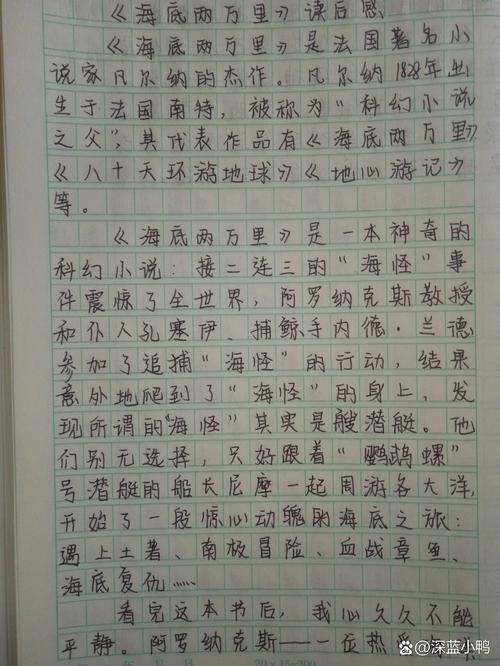 《海底两万里》读后感
《海底两万里》是法国著名小
说家凡尔纳的杰作。凡尔纳1828年出
生于法国南特，被称为“科幻小说
之父”，其代表作品有《海底两万里》
《八十天环游地球》《地心游记》
等。
《海底两万里》是一本神奇的
科幻小说：接二连三的“海怪”事
件震惊了全世界，阿罗纳克斯教授
和仆人孔塞伊、捕鲸手内德·兰德
参加了追捕“海怪”的行动，结果
意外地爬到了“海怪”的身上，发
现所谓的“海怪”其实是艘潜艇。他
们别无选择，只好跟着“鹦鹉螺”
号潜艇的船长尼摩一起周游各大洋，
开始了一段惊心动魄的海底之旅：
遇上土著、南极冒险、血战章鱼、
海底复仇……
看完这本书后，我心久久不能
平静。阿罗纳克斯——一位热
20×15=300
@深蓝小鸭